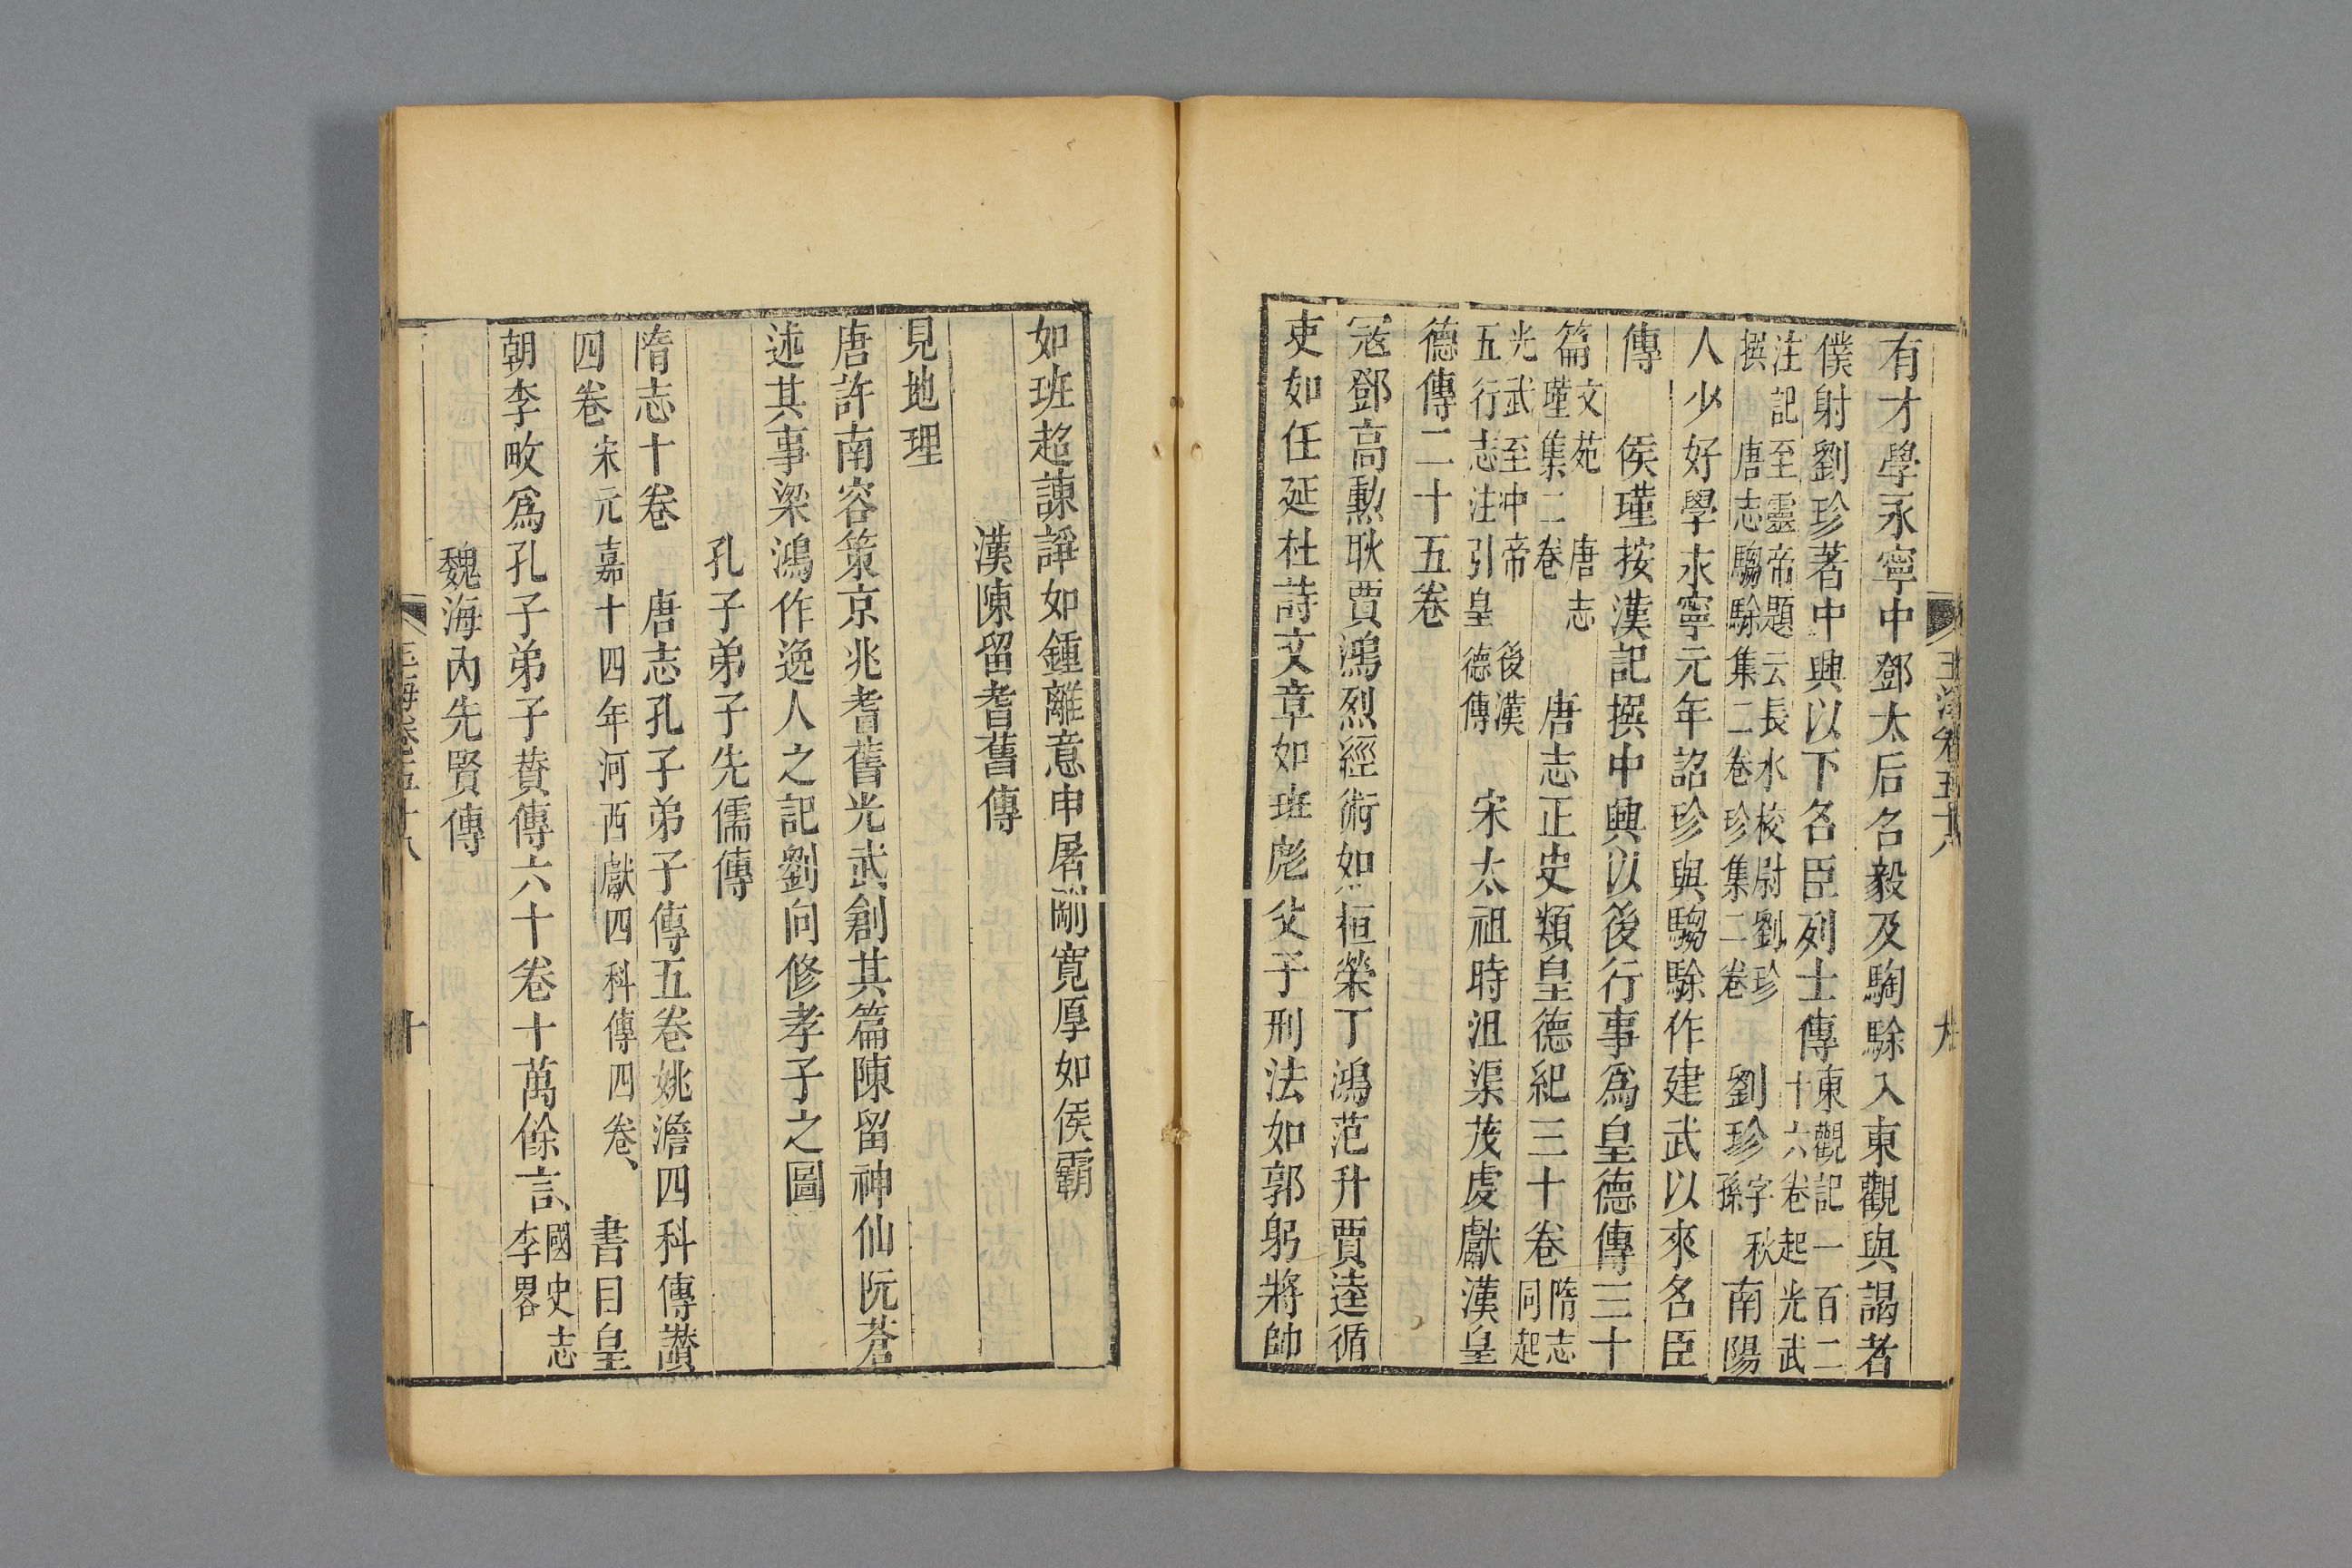 玉海卷五十八 九
有才學永寧中鄧太后名毅及騊駼入東觀與謁者
僕射劉珍著中興以下名臣列士傳東觀記一百二十六卷起光武
注記至靈帝題云長水校尉劉珍撰 唐志騶駼集二卷珍集二卷 劉珍字秋孫南陽
人少好學永寧元年詔珍與騶駼作建武以來名臣
傳 侯瑾按漢記撰中興以後行事為皇德傳三十
篇文苑 唐志瑾集二卷 唐志正史類皇德紀三十卷隋志同起
光武至冲帝 後漢五行志注引皇德傳 宋太祖時沮渠茂虔獻漢皇
德傳二十五卷
冦鄧高勲耿賈鴻烈經術如桓榮丁鴻范升賈逵循
吏如任延杜詩文章如班彪父子刑法如郭躬將帥
如班超諫諍如鍾離意申屠剛寛厚如侯霸
漢陳留耆舊傳
見地理
唐許南容策京兆耆舊光武創其篇陳留神仙阮蒼
述其事梁鴻作逸人之記劉向修孝子之圖
孔子弟子先儒傳
隋志十卷 唐志孔子弟子傳五卷姚澹四科傳讚
四卷宋元嘉十四年河西獻四科傳四卷 書目皇
朝李畋為孔子弟子贊傳六十卷十萬餘言國史志李畧
魏海內先賢傳
玉海卷五十八 十